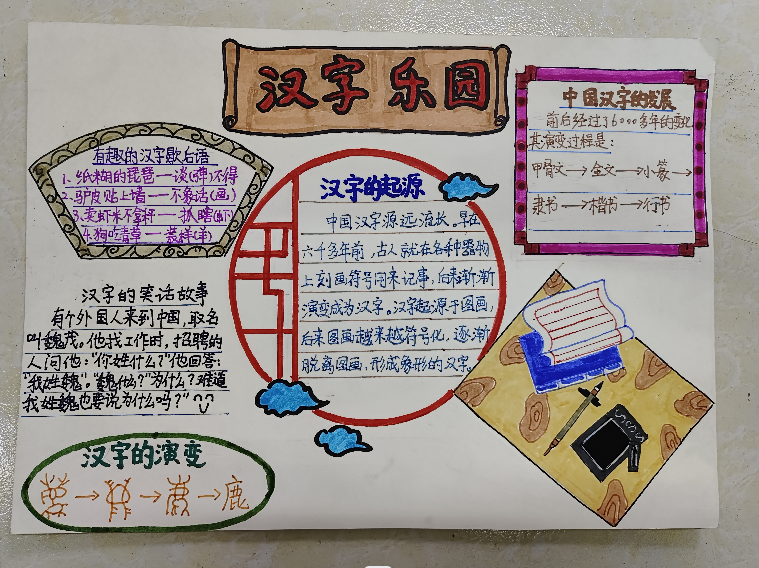 汉字乐园
有趣的汉字歇后语
1、纸糊的琵琶—谈(弹)不得
2、驴皮贴上墙—不象话(画)
3、卖虾米不拿秤—抓瞎(虾)
4、狗吃青草—装样(羊)
汉字的起源
中国汉字源远流长。早在
六千多年前,古人就在各种器物
上刻画符号用来记事,后来渐渐
演变成为汉字。汉字起源于图画,
后来图画越来越符号化,逐渐
脱离图画,形成象形的汉字。
中国汉字的发展
前后经过了6000多年的变化
其演变过程是:
甲骨文→金文→小篆→
隶书→楷书→行书
汉字的笑话故事
有个外国人来到中国,取名
叫魏茂。他找工作时,招聘的
人问他:“你姓什么?”他回答:
“我姓魏”。“魏什么?”“为什么?难道
我姓魏也要说为什么吗?”
汉字的演变
→ → →鹿